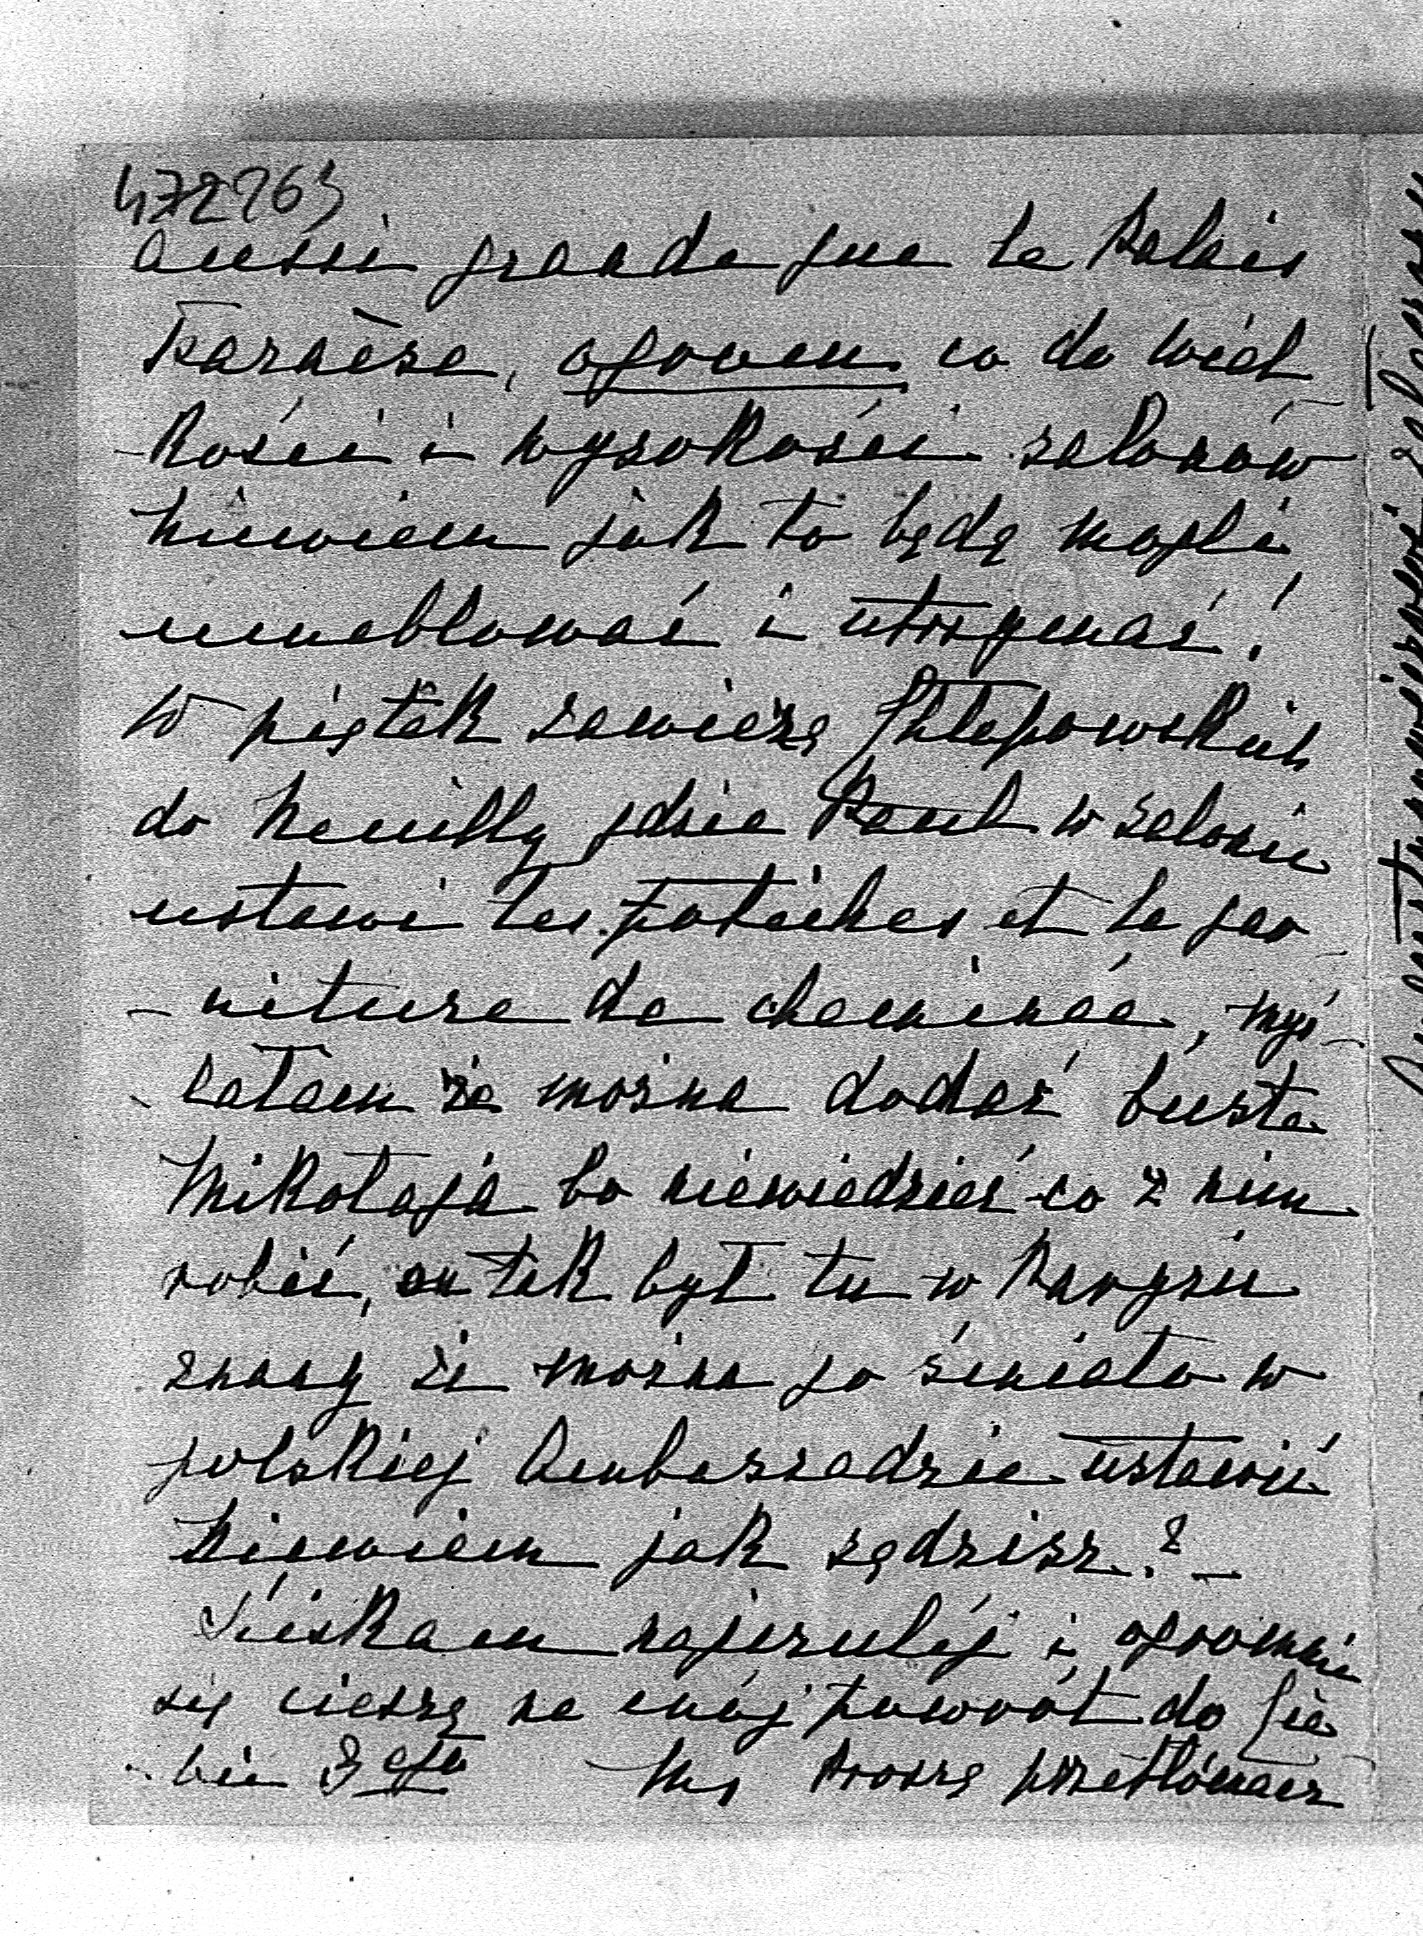 472763
aussi grande que le Palais
Farnèse, ogrom co do wiel
-kości i wysokości salonów
niewiem jak to będą mogli
umeblować i utrzymać!
W piątek zawiozę Chłapowskich
do Neuilly gdzie Paul w salonie
ustawi les potiches et la gar
-niture de cheminée, myś
-lałam że można dodać busta
Mikołaja bo niewiedzieć co z nim
robić, on tak był tu w Paryżu
znany że można go śmiało w
polskiej Ambassadzie ustawić
niewiem jak sądzisz? –
Ściskam najczulej i ogromnie
się cieszę na mój powrót do Cie
-bie 3go My Proszę przetłómacz